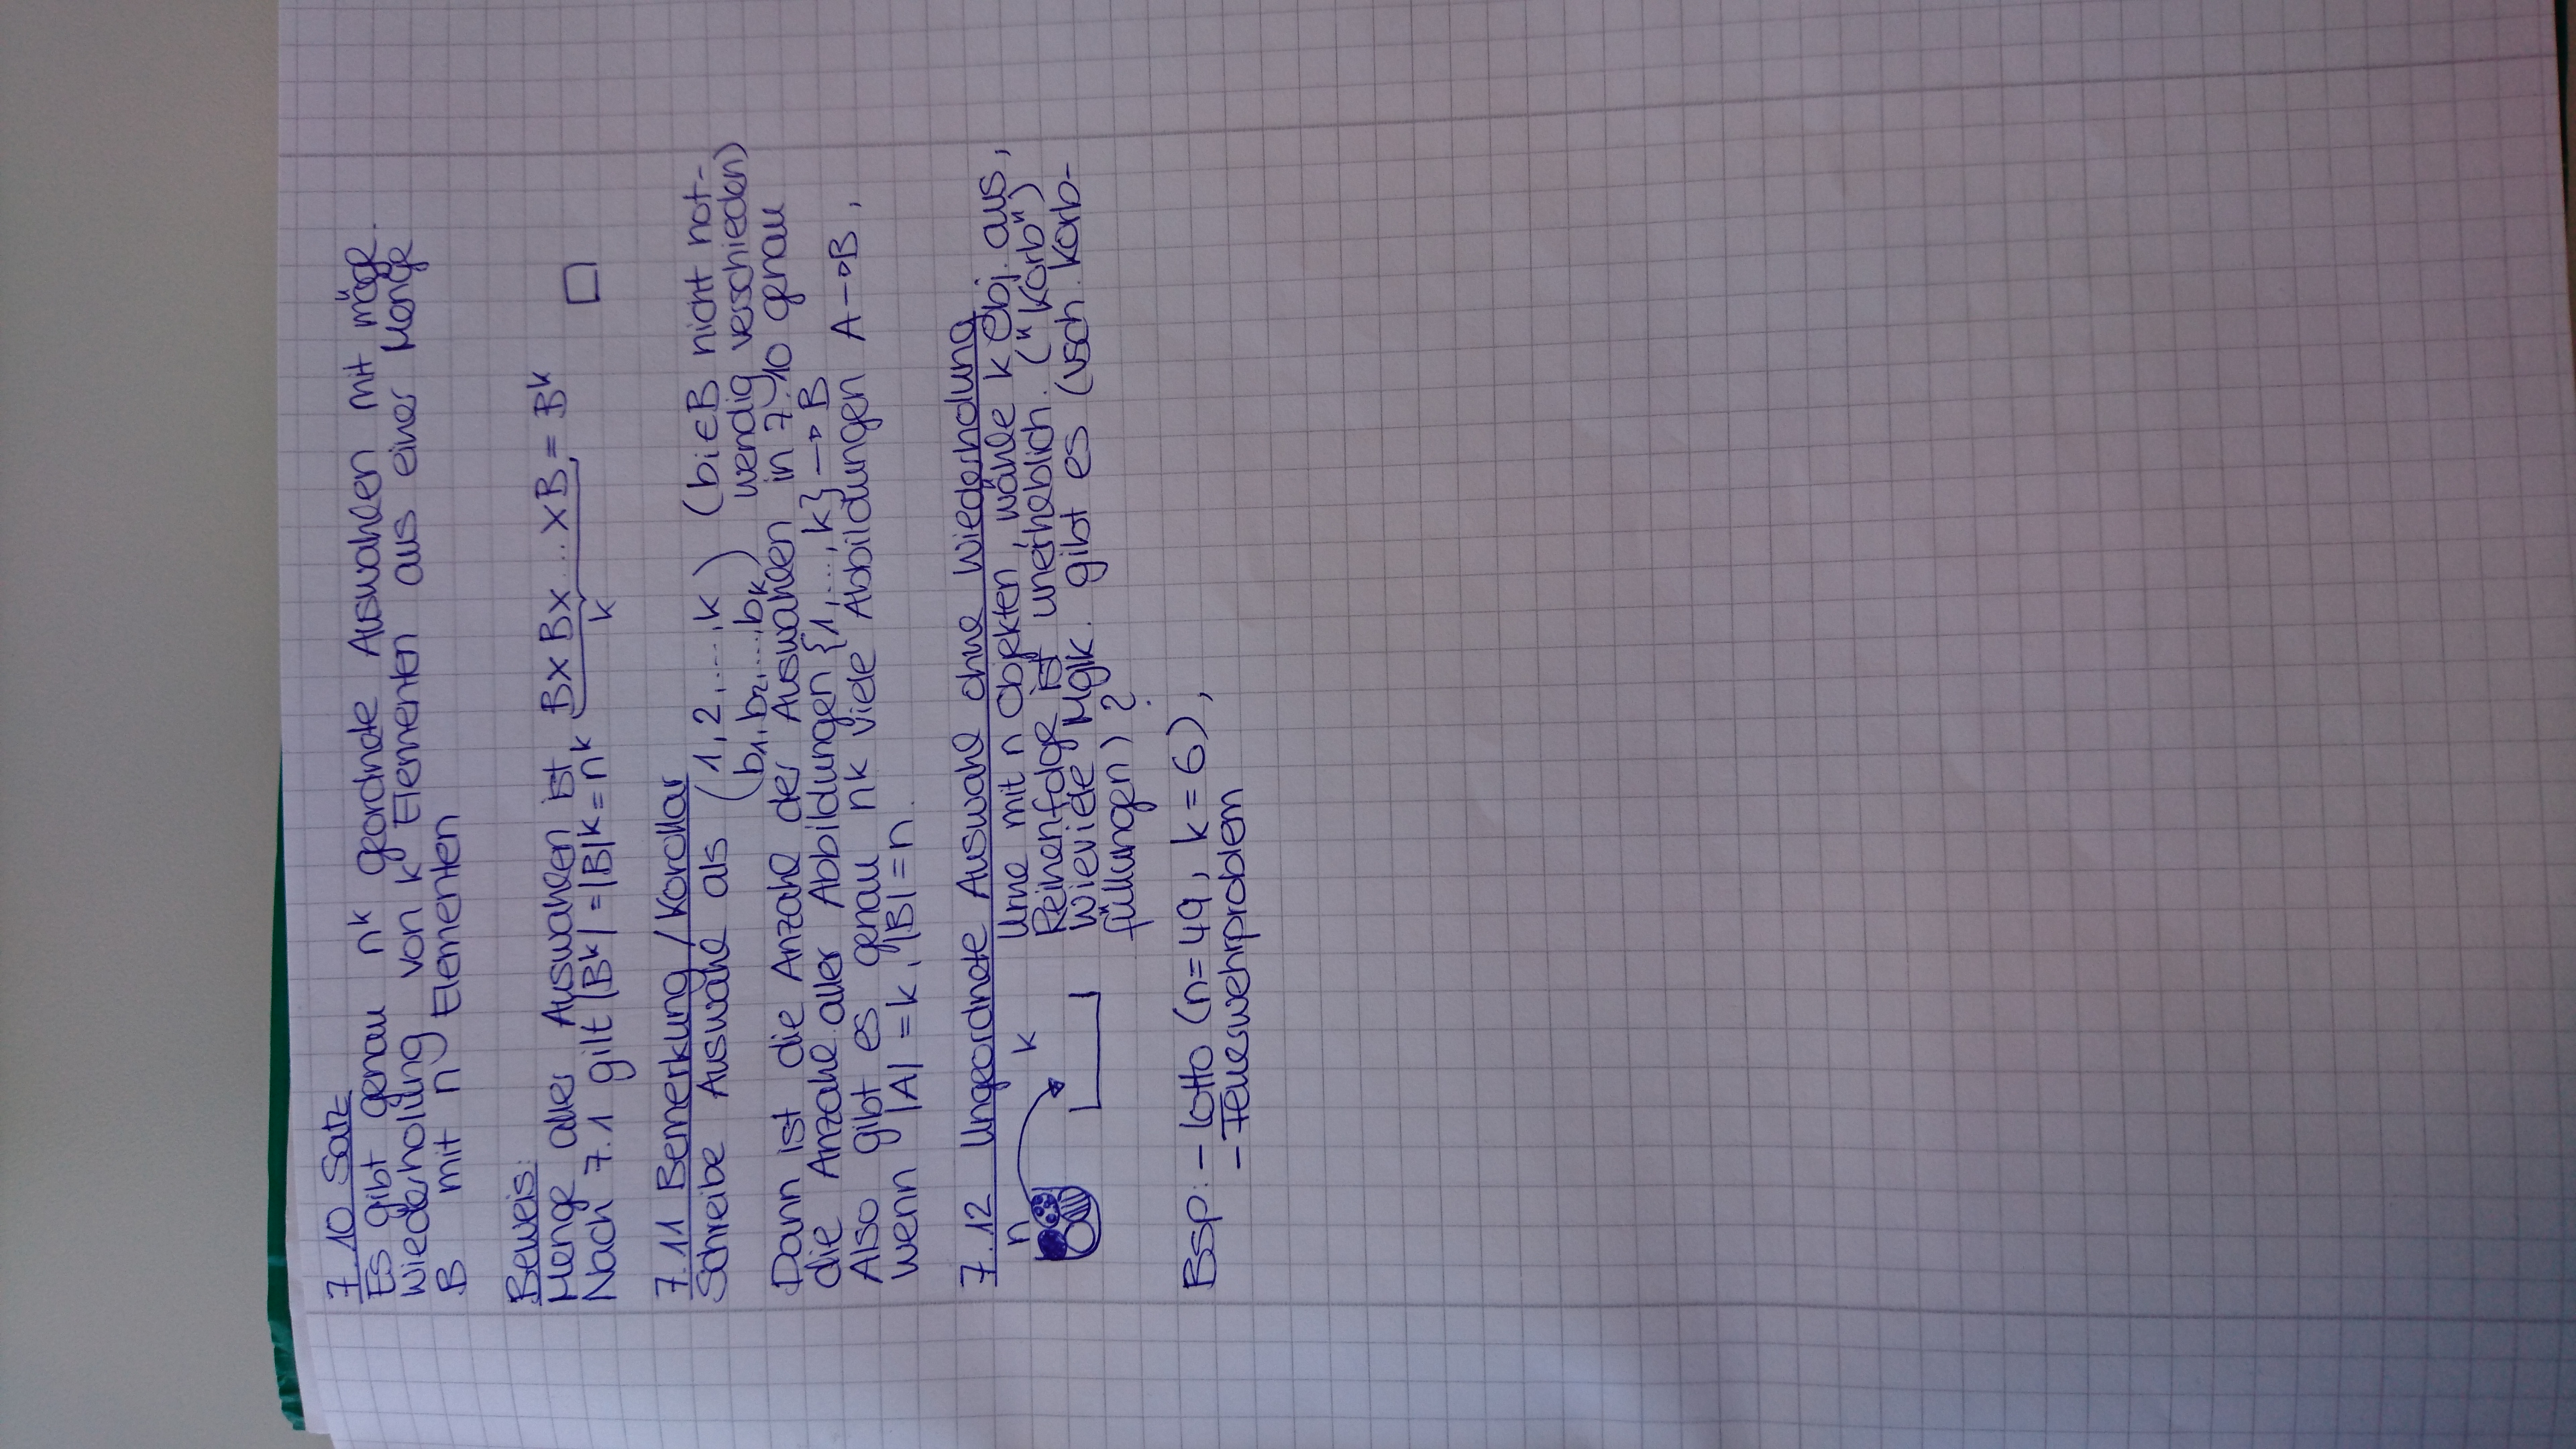 7.10 Satz
Es gibt genau n^k geordnete Auswahlen mit mögl.
Wiederholung von k Elementen aus einer Menge
B mit n Elementen
Beweis:
Menge aller Auswahlen ist B×B×...×B = B^k
k
Nach 7.1 gilt |B^k| = |B|^k = n^k □
7.11 Bemerkung / Korollar
Schreibe Auswahl als (1, 2, ..., k) (bi ∈ B nicht not-
b1, b2, ..., bk wendig verschieden)
Dann ist die Anzahl der Auswahlen in 7.10 genau
die Anzahl aller Abbildungen {1, ..., k} → B
Also gibt es genau n^k viele Abbildungen A → B,
wenn |A| = k, |B| = n.
7.12 Ungeordnete Auswahl ohne Wiederholung
n k
Urne mit n Objekten, wähle k Obj. aus,
Reihenfolge ist unerheblich. ("Korb")
Wieviele Mglk. gibt es (vsch. Korb-
füllungen)?
Bsp: - Lotto (n=49, k=6),
- Feuerwehrproblem